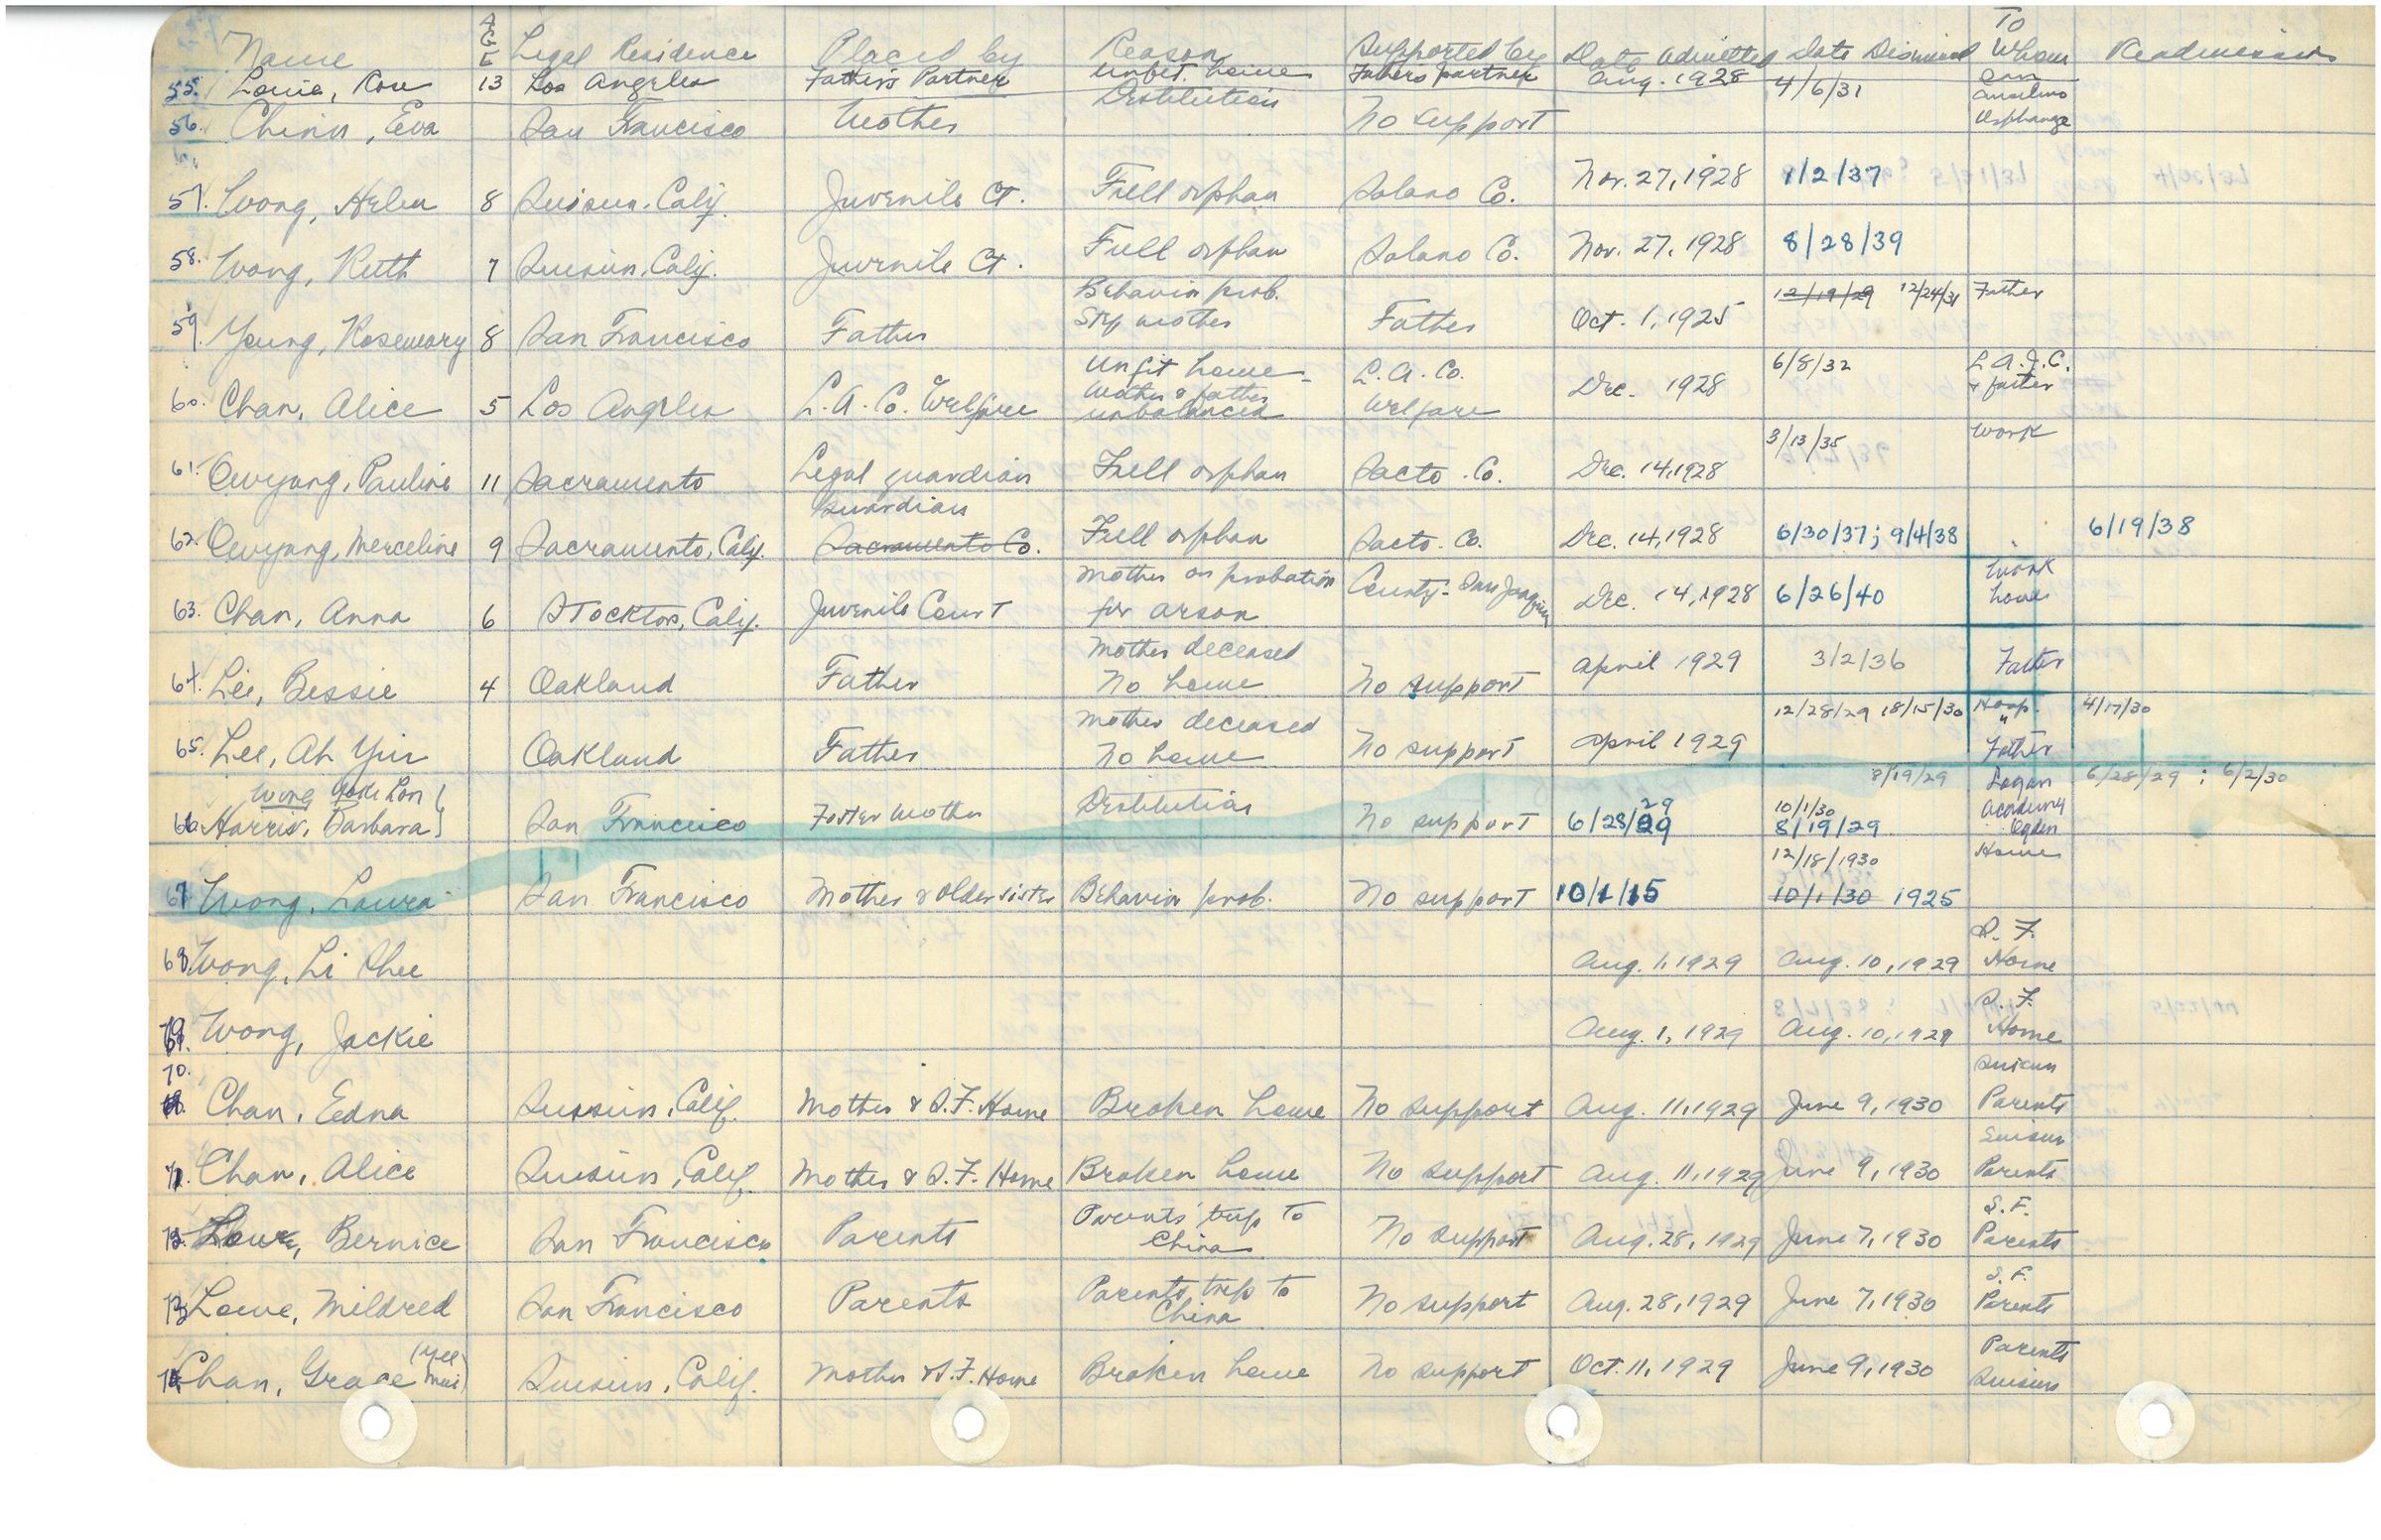 Name AGE Legal Residence Placed by Reason Supported by Date Admitted Date Dismissed To Whom Readmission
55. Louie, Rose 13 Los Angeles Father's Partner Unfit home Fathers partner Aug. 1928 4/6/31 San Anselmo Orphanage
56. Chinn, Eva San Francisco Mother Destitution No support
57. Wong, Helen 8 Suisun, Calif. Juvenile Ct. Full orphan Solano Co. Nov. 27, 1928 1/2/37
58. Wong, Ruth 7 Suisun, Calif. Juvenile Ct. Full orphan Solano Co. Nov. 27, 1928 8/28/39
59. Young, Rosemary 8 San Francisco Father Behavior prob. Step mother Father Oct. 1, 1925 12/19/29 12/24/31 Father
60. Chan, Alice 5 Los Angeles L.A. Co. Welfare Unfit home - Mother & father unbalanced L.A. Co. Welfare Dec. 1928 6/8/32 L.A.J.C. & father
61. Owyang, Pauline 11 Sacramento Legal guardian Full orphan Sacto. Co. Dec. 14, 1928 3/13/35 Work
62. Owyang, Merceline 9 Sacramento, Calif. Guardian Sacramento Co. Full orphan Sacto. Co. Dec. 14, 1928 6/30/37; 9/4/38 6/19/38
63. Chan, Anna 6 Stockton, Calif. Juvenile Court Mother on probation for arson County - San Joaquin Dec. 14, 1928 6/26/40 Work home
64. Lee, Bessie 4 Oakland Father Mother deceased No home No support April 1929 3/2/36 Father
65. Lee, Ah Yin Oakland Father Mother deceased No home No support April 1929 12/28/29 /15/30 Hosp. " Father 4/17/30
Wong
66. Harris, Barbara San Francisco Foster Mother Destitution No support 6/28/29 29 8/19/29 10/1/30 8/19/29 Logan Academy Ogden 6/28/29 ; 6/2/30
67 Wong, Laura San Francisco Mother & older sister Behavior prob. No support 10/1/15 12/18/1930 10/1/30 1925 Home
68 Wong, Li Shee Aug. 1, 1929 Aug. 10, 1929 S.F. Home
69. Wong, Jackie Aug. 1, 1929 Aug. 10, 1929 S.F. Home
70. Chan, Edna Suisun, Calif. Mother & S.F. Home Broken home No support Aug. 11, 1929 June 9, 1930 Suisun Parents
71. Chan, Alice Suisun, Calif. Mother & S.F. Home Broken home No support Aug. 11, 1929 June 9, 1930 Suisun Parents
72. Lowe, Bernice San Francisco Parents Parents' trip to China No support Aug. 28, 1929 June 7, 1930 S.F. Parents
73. Lowe, Mildred San Francisco Parents Parents trip to China No support Aug. 28, 1929 June 7, 1930 S.F. Parents
74. Chan, Grace (Yee Mui) Suisun, Calif. Mother & S.F. Home Broken home No support Oct. 11, 1929 June 9, 1930 Parents Suisun